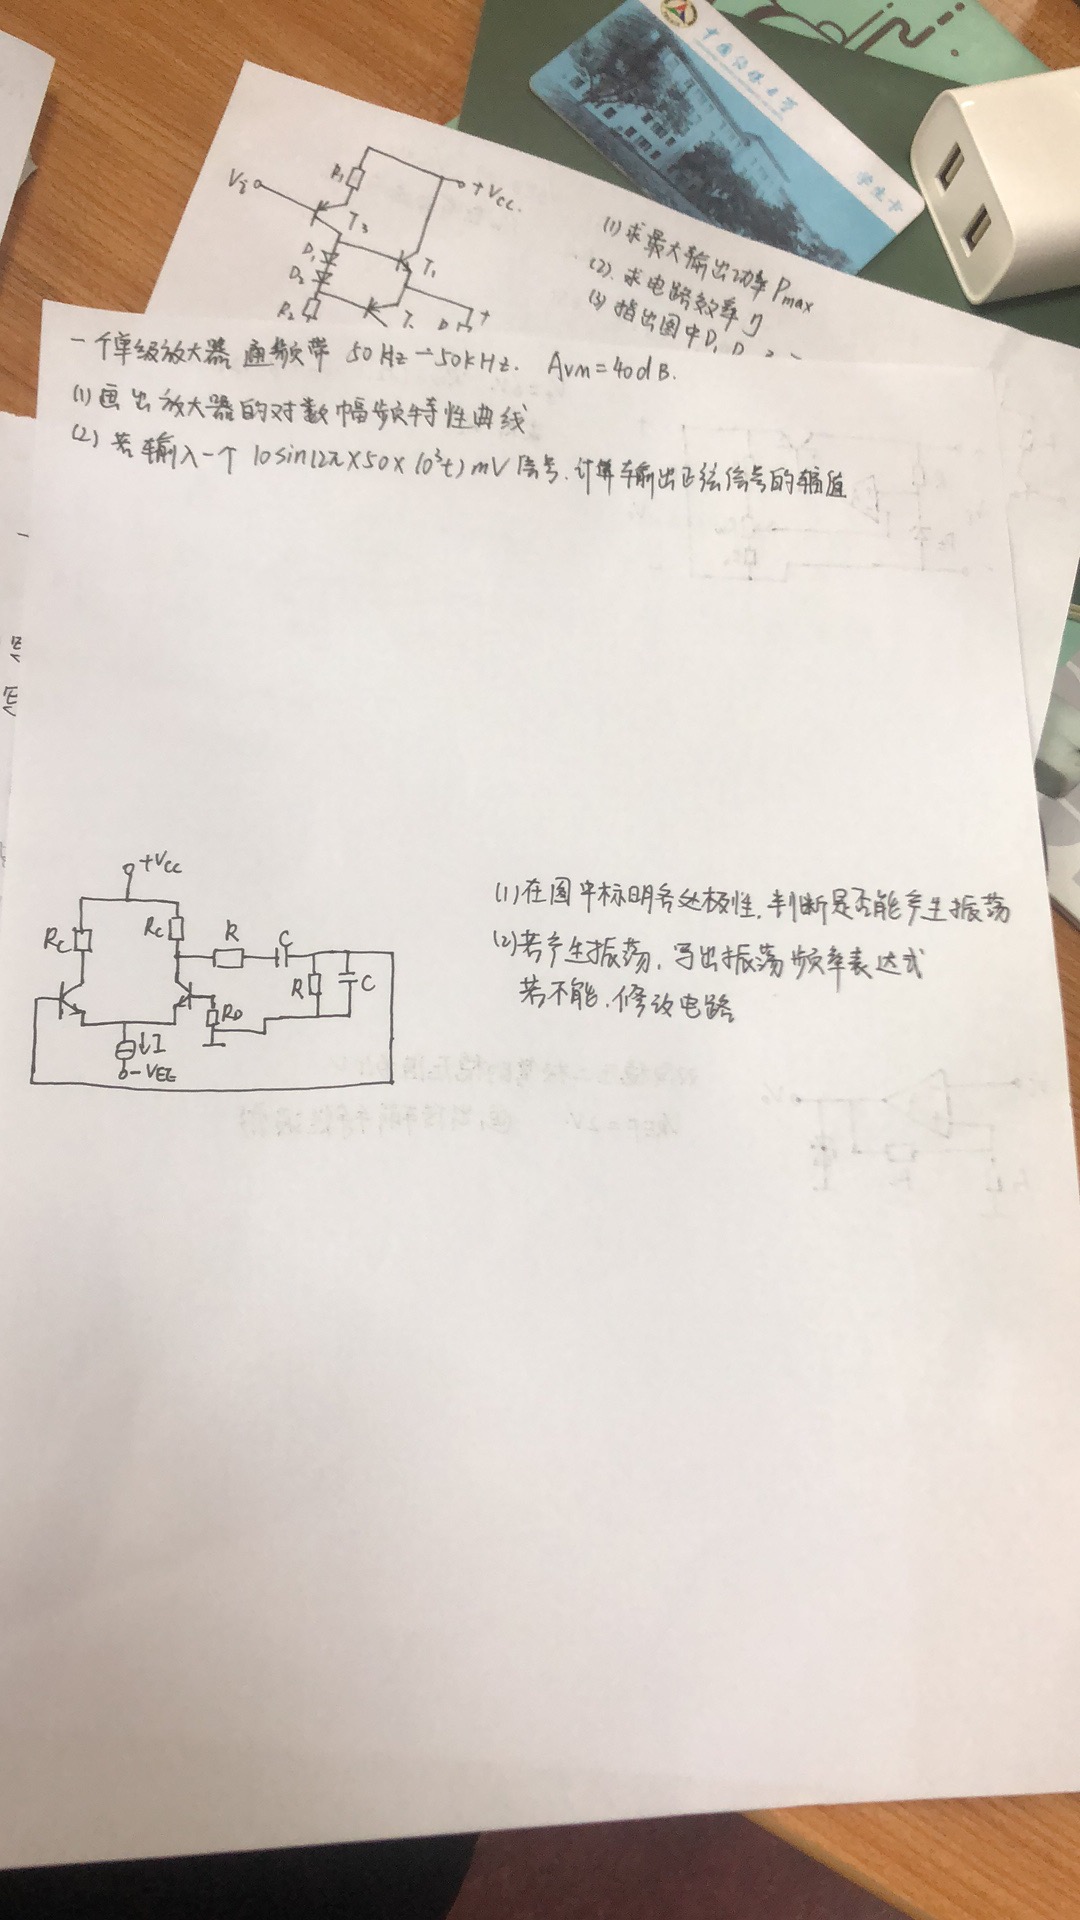 中国传媒大学
学生卡
+Vcc.
R1
Vi
T3
D1
T1
D2
R2
(1)求最大输出功率Pmax
(2).求电路效率η
(3)指出图中D1
一个单级放大器 通频带 50Hz—50kHz. Avm=40dB.
(1)画出放大器的对数幅频特性曲线
(2)若输入一个 10sin(2π×50×10³t)mV信号.计算输出正弦信号的幅值
+Vcc
Rc
Rc
R
C
R
C
Rb
↓I
-VEE
(1)在图中标明各处极性.判断是否能产生振荡
(2)若产生振荡,写出振荡频率表达式
若不能,修改电路